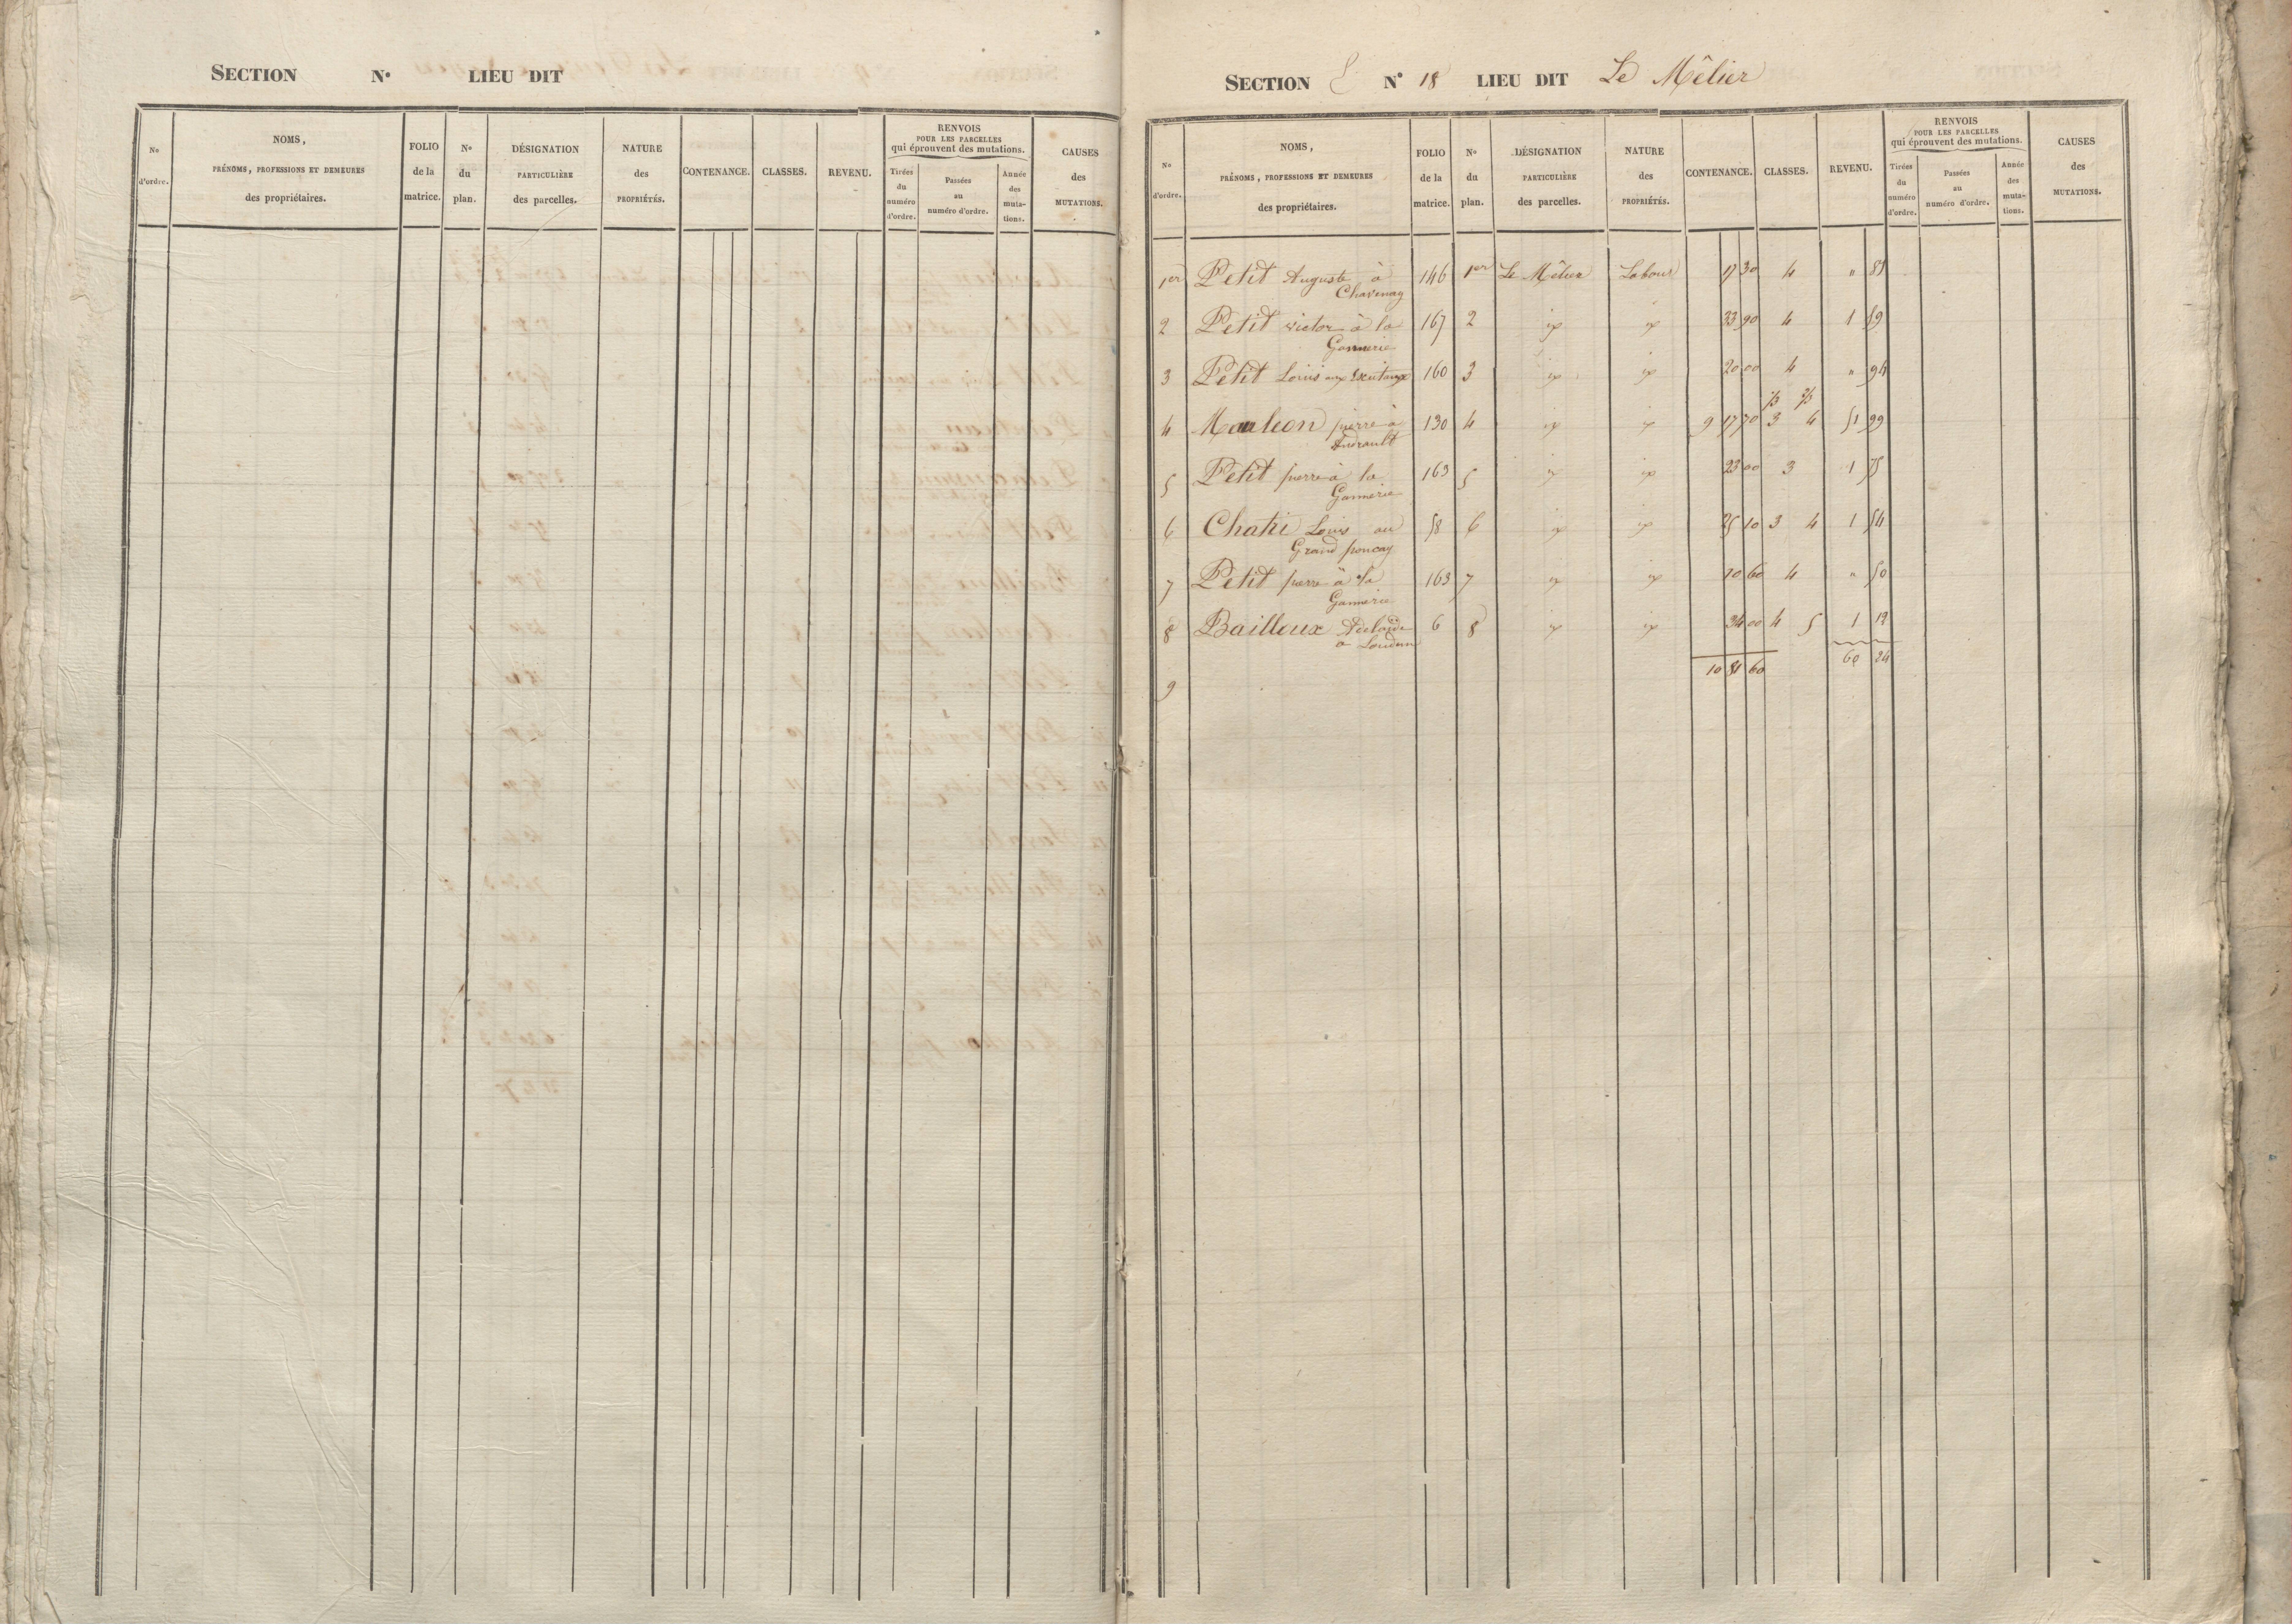 SECTION N° LIEU DIT
N° d'ordre.
NOMS, PRÉNOMS, PROFESSIONS ET DEMEURES des propriétaires.
FOLIO de la matrice.
N° du plan.
DÉSIGNATION PARTICULIÈRE des parcelles.
NATURE des PROPRIÉTÉS.
CONTENANCE.
CLASSES.
REVENU.
RENVOIS POUR LES PARCELLES qui éprouvent des mutations.
Tirées du numéro d'ordre.
Passées au numéro d'ordre.
Année des muta-tions.
CAUSES des MUTATIONS.
SECTION E N° 18 LIEU DIT Le Mêlier
N° d'ordre.
NOMS, PRÉNOMS, PROFESSIONS ET DEMEURES des propriétaires.
FOLIO de la matrice.
N° du plan.
DÉSIGNATION PARTICULIÈRE des parcelles.
NATURE des PROPRIÉTÉS.
CONTENANCE.
CLASSES.
REVENU.
RENVOIS POUR LES PARCELLES qui éprouvent des mutations.
Tirées du numéro d'ordre.
Passées au numéro d'ordre.
Année des muta-tions.
CAUSES des MUTATIONS.
1er Petit Auguste à 146 1er Le Mêlier Labour 17 30 4 " 81
Chavenay
2 Petit victor à la 167 2 id id 33 90 4 1 59
Gannerie
3 Petit Louis aux 160 3 id id 20 00 4 " 94
1/3 2/3
4 Mauleon pierre à 130 4 id id 9 17 70 3 4 51 99
Andrault
5 Petit pierre à la 163 5 id id 23 00 3 1 75
Gannerie
6 Chatri Louis au 58 6 id id 25 10 3 4 1 54
Grand poncay
7 Petit pierre à la 163 7 id id 10 60 4 " 50
Gannerie
8 Bailloux Adelaïde 6 8 id id 34 00 4 5 1 12
a Loudun
10 81 60 60 24
9